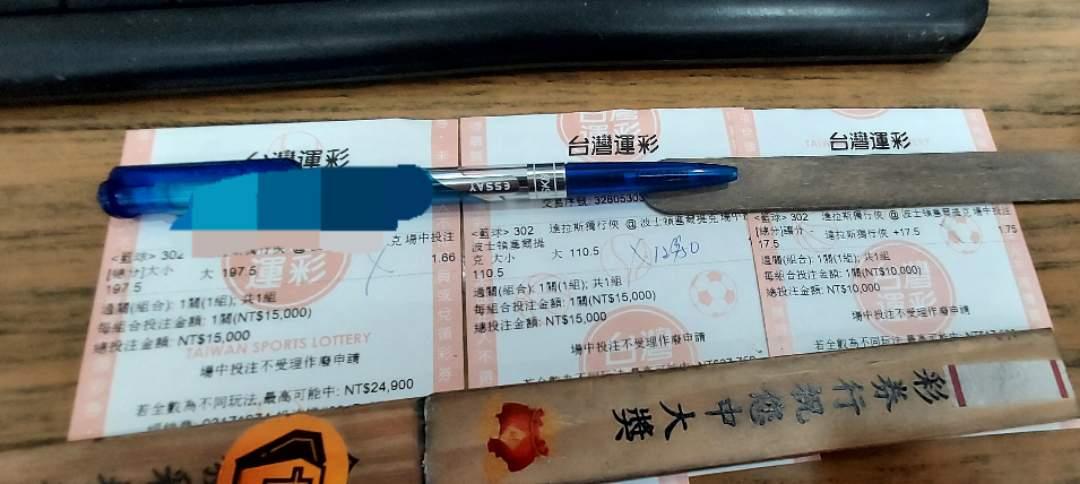 台灣運彩
克 場中投注
<籃球> 302
[總分]大小 大 197.5 1.66
197.5
過關(組合): 1關(1組); 共1組
每組合投注金額: 1關(NT$15,000)
總投注金額: NT$15,000
TAIWAN SPORTS LOTTERY
場中投注不受理作廢申請
若全數為不同玩法,最高可能中: NT$24,900
台灣運彩
ESSAY
<籃球> 302 達拉斯獨行俠 @ 波士頓塞爾提克 場中
波士頓塞爾提
克 大小 大 110.5
110.5
過關(組合): 1關(1組); 共1組
每組合投注金額: 1關(NT$15,000)
總投注金額: NT$15,000
場中投注不受理作廢申請
台灣運彩
<籃球> 302 達拉斯獨行俠 @ 波士頓塞爾提克 場中投注
[總分]讓分 達拉斯獨行俠 +17.5 1.75
17.5
過關(組合): 1關(1組); 共1組
每組合投注金額: 1關(NT$10,000)
總投注金額: NT$10,000
場中投注不受理作廢申請
彩券行祝您中大獎